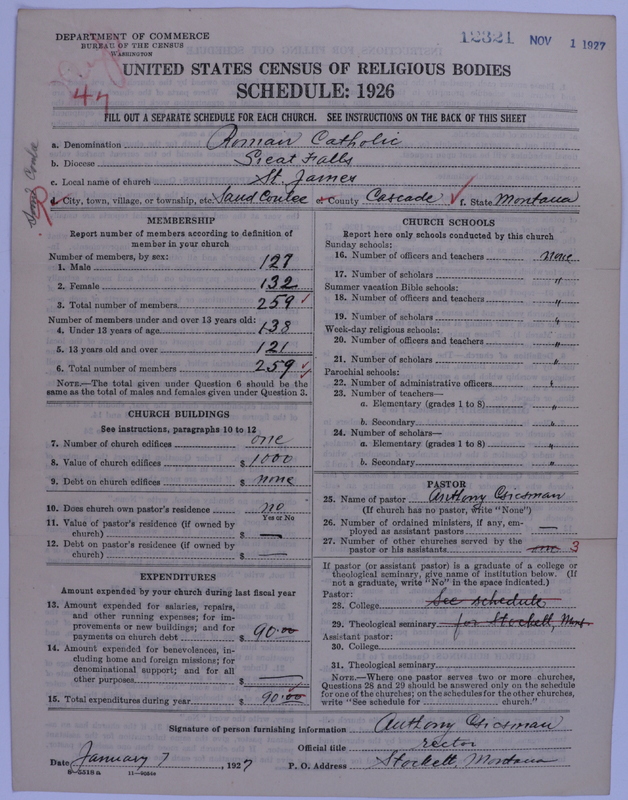 DEPARTMENT OF COMMERCE
BUREAU OF THE CENSUS
WASHINGTON
12321 NOV 1 1927
47
UNITED STATES CENSUS OF RELIGIOUS BODIES
SCHEDULE: 1926
FILL OUT A SEPARATE SCHEDULE FOR EACH CHURCH. SEE INSTRUCTIONS ON THE BACK OF THIS SHEET
a. Denomination Roman Catholic
b. Diocese Great Falls
c. Local name of church St. James
d. City, town, village, or township, etc. Sand Coulee e. County Cascade f. State Montana
Sand Coulee
MEMBERSHIP
Report number of members according to definition of
member in your church
Number of members, by sex:
1. Male 127
2. Female 132
3. Total number of members 259
Number of members under and over 13 years old:
4. Under 13 years of age 138
5. 13 years old and over 121
6. Total number of members 259
NOTE.—The total given under Question 6 should be the
same as the total of males and females given under Question 3.
CHURCH BUILDINGS
See instructions, paragraphs 10 to 12
7. Number of church edifices one
8. Value of church edifices $ 1000
9. Debt on church edifices $ none
10. Does church own pastor's residence no
Yes or No
11. Value of pastor's residence (if owned by
church) $ —
12. Debt on pastor's residence (if owned by
church) $ —
EXPENDITURES
Amount expended by your church during last fiscal year
13. Amount expended for salaries, repairs,
and other running expenses; for im-
provements or new buildings; and for
payments on church debt $ 90.00
14. Amount expended for benevolences, in-
cluding home and foreign missions; for
denominational support; and for all
other purposes $ —
15. Total expenditures during year $ 90.00
CHURCH SCHOOLS
Report here only schools conducted by this church
Sunday schools:
16. Number of officers and teachers none
17. Number of scholars "
Summer vacation Bible schools:
18. Number of officers and teachers "
19. Number of scholars "
Week-day religious schools:
20. Number of officers and teachers "
21. Number of scholars "
Parochial schools:
22. Number of administrative officers "
23. Number of teachers—
a. Elementary (grades 1 to 8) "
b. Secondary "
24. Number of scholars—
a. Elementary (grades 1 to 8) "
b. Secondary "
PASTOR
25. Name of pastor Anthony Gicsman
(If church has no pastor, write "None")
26. Number of ordained ministers, if any, em-
ployed as assistant pastors —
27. Number of other churches served by the
pastor or his assistants one 3
If pastor (or assistant pastor) is a graduate of a college or
theological seminary, give name of institution below. (If
not a graduate, write "No" in the space indicated.)
Pastor:
28. College See schedule
29. Theological seminary for Stockett, Mont.
Assistant pastor:
30. College
31. Theological seminary
NOTE.—Where one pastor serves two or more churches,
Questions 28 and 29 should be answered only on the schedule
for one of the churches; on the schedules for the other churches,
write "See schedule for church."
Signature of person furnishing information Anthony Gicsman
Official title rector
Date January 7, 1927 P. O. Address Stockett, Montana
8-5318a 11-9054a